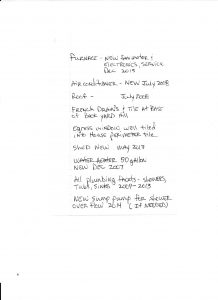 FURNACE - NEW IGNITER &
ELECTRONICS, SERVICE
DEC 2013
AIR CONDITIONER - NEW July 2008
ROOF - July 2008
FRENCH DRAINS & TILE AT BASE
OF BACK YARD HILL
EGRESS WINDOW, WELL TILED
INTO HOUSE PERIMETER TILE
SHED NEW MAY 2013
WATER HEATER 50 gallon
NEW DEC 2007
All plumbing faucets - SHOWERS,
TUBS, SINKS 2009-2013
NEW Sump pump for shower
OVER flow 2014 (IF NEEDED)